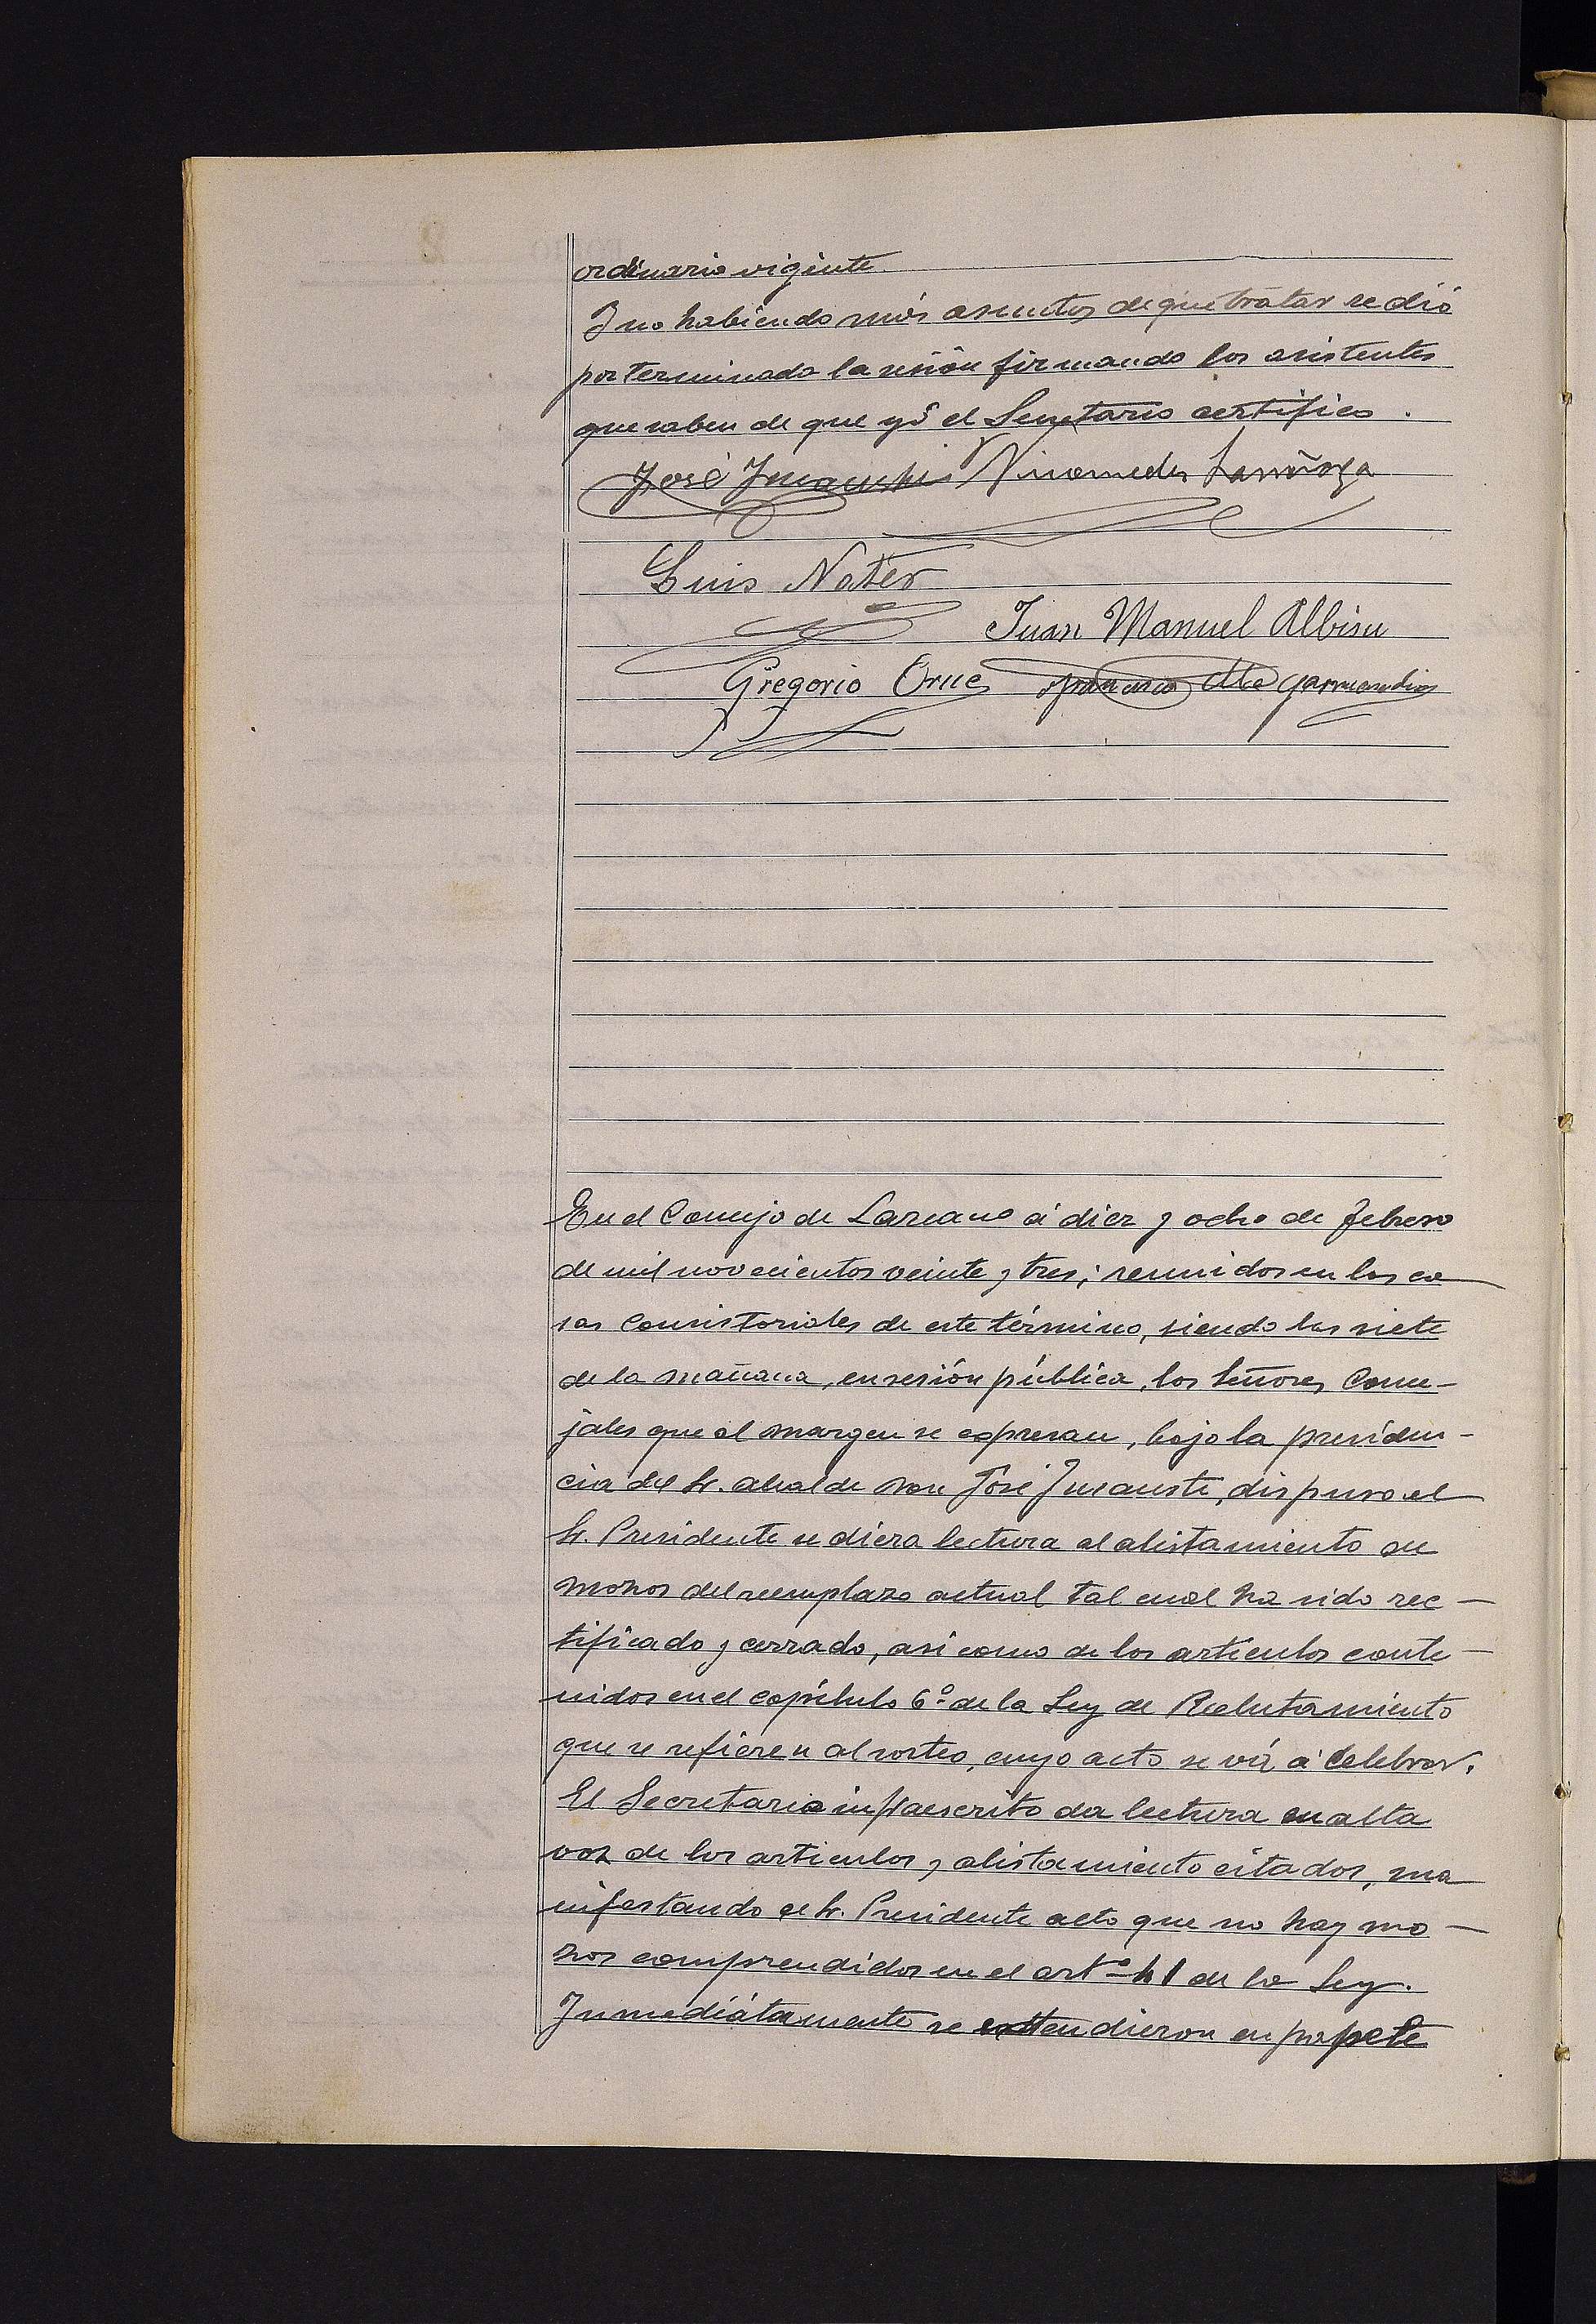 ordinario vigente.
Y no habiendo más asuntos de que tratar se dió
por terminada la sesión firmando los asistentes
que saben de que yó el Secretario certifico.
José Inchausti Nicomedes Larrañaga
Luis Noter
Juan Manuel Albisu
Gregorio Orue Francisco Mª Garmendia
En el Concejo de Lazcano á diez y ocho de Febrero
de mil novecientos veinte y tres; reunidos en las ca
sas Consistoriales de este término, siendo las siete
de la mañana, en sesión pública, los Señores Conce-
jales que al margen se expresan, bajo la presiden-
cia del Sr. alcalde Don José Incausti, dispuso el
Sr. Presidente se diera lectura al alistamiento de
mozos del reemplazo actual tal cual ha sido rec-
tificado y cerrado, asi como de los artículos conte-
nidos en el capítulo 6º de la Ley de Reclutamiento
que se refieren al sorteo, cuyo acto se vá á celebrar.
El Secretario infraescrito da lectura en alta
voz de los articulos y alistamiento citados, ma
nifestando el Sr. Presidente acto que no hay mo-
zos comprendidos en el artº 41 de la Ley.
Inmediátamente se extendieron en papele